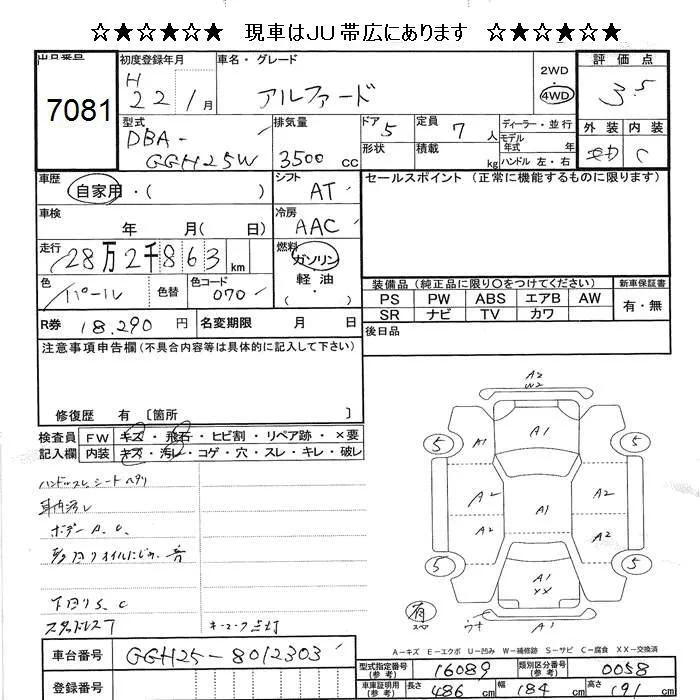 ☆★☆★☆★☆ 現車はJU帯広にあります ☆★☆★☆★☆
出品番号 初度登録年月 車名・グレード 2WD 評価点
7081 H 22 1月 アルファード 4WD 3.5
型式 排気量 ドア 定員 ディーラー・並行 外装 内装
DBA- GGH25W 3500 cc 5 7人 モデル年式 年 C
形状 積載 kg ハンドル 左・右
車歴 自家用・( ) シフト AT セールスポイント (正常に機能するものに限ります)
車検 年 月(日) 冷房 AAC
走行 28万2千863 km 燃料 ガソリン 軽油・( )
色 パール 色替 色コード 070
装備品 (純正品に限り○をつけてください) 新車保証書
PS PW ABS エアB AW 有・無
SR ナビ TV カワ
R券 18,290 円 名変期限 月 日 後日品
注意事項申告欄 (不具合内容等は具体的に記入して下さい)
修復歴 有 [箇所 ]
検査員 FW キズ・飛石・ヒビ割・リペア跡・×要
記入欄 内装 キズ・汚レ・コゲ・穴・スレ・キレ・破レ
ハンドルスレ シートヘタリ
車内汚レ
ボデー A.U.
下回りS.C
キーマーク点灯
A2
W2
A1
5 A1 5
A2 A1 A2
A2 A2
5 A1 5
XX
有 ウキ A1
A-キズ E-エクボ U-凹み W-補修跡 S-サビ C-腐食 XX-交換済
車台番号 GGH25-8012303
型式指定番号 (参考) 16089 類別区分番号 (参考) 0058
登録番号
車庫証明用 (参考) 長さ 486 cm 幅 184 cm 高さ 191 cm